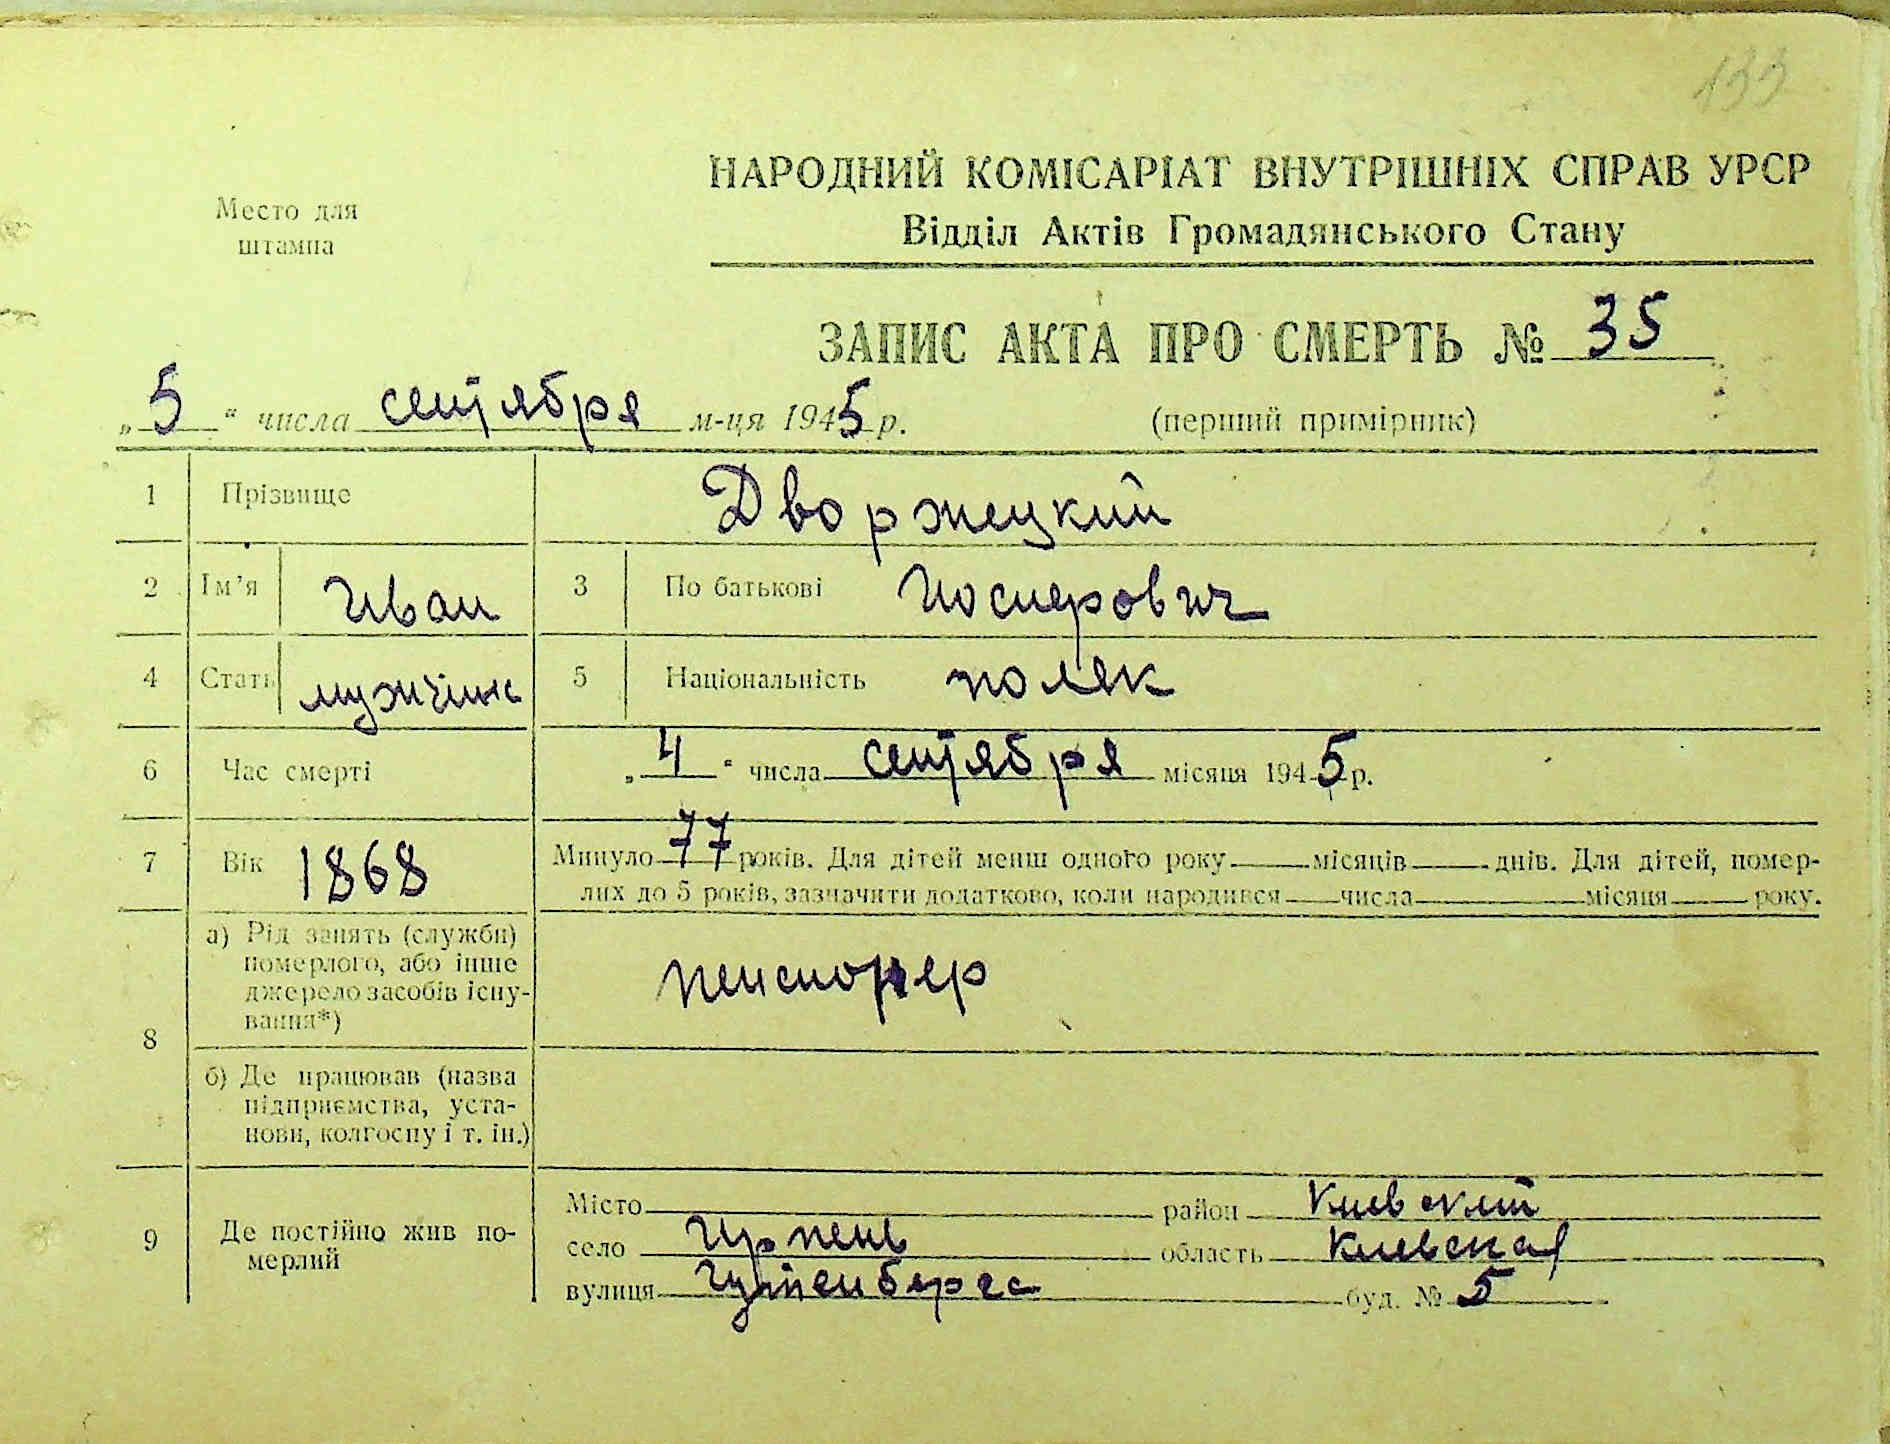 133
НАРОДНИЙ КОМІСАРІАТ ВНУТРІШНІХ СПРАВ УРСР
Место для
штампа
Відділ Актів Громадянського Стану
ЗАПИС АКТА ПРО СМЕРТЬ № 35
„5“ числа сентября м-ця 1945 р. (перший примірник)
1 Прізвище Дворжецкий
2 Ім'я Иван 3 По батькові Иосифович
4 Стать мужчина 5 Національність поляк
6 Час смерті „4“ числа сентября місяця 1945 р.
7 Вік 1868 Минуло 77 років. Для дітей менш одного року місяців днів. Для дітей, помер-
лих до 5 років, зазначити додатково, коли народився числа місяця року.
8 а) Рід занять (служби)
померлого, або інше
джерело засобів існу-
вання*)
пенсионер
б) Де працював (назва
підприємства, уста-
нови, колгоспу і т. ін.)
9 Де постійно жив по-
мерлий
Місто район Киевский
село Ирпень область Киевская
вулиця Гутенберга буд. № 5